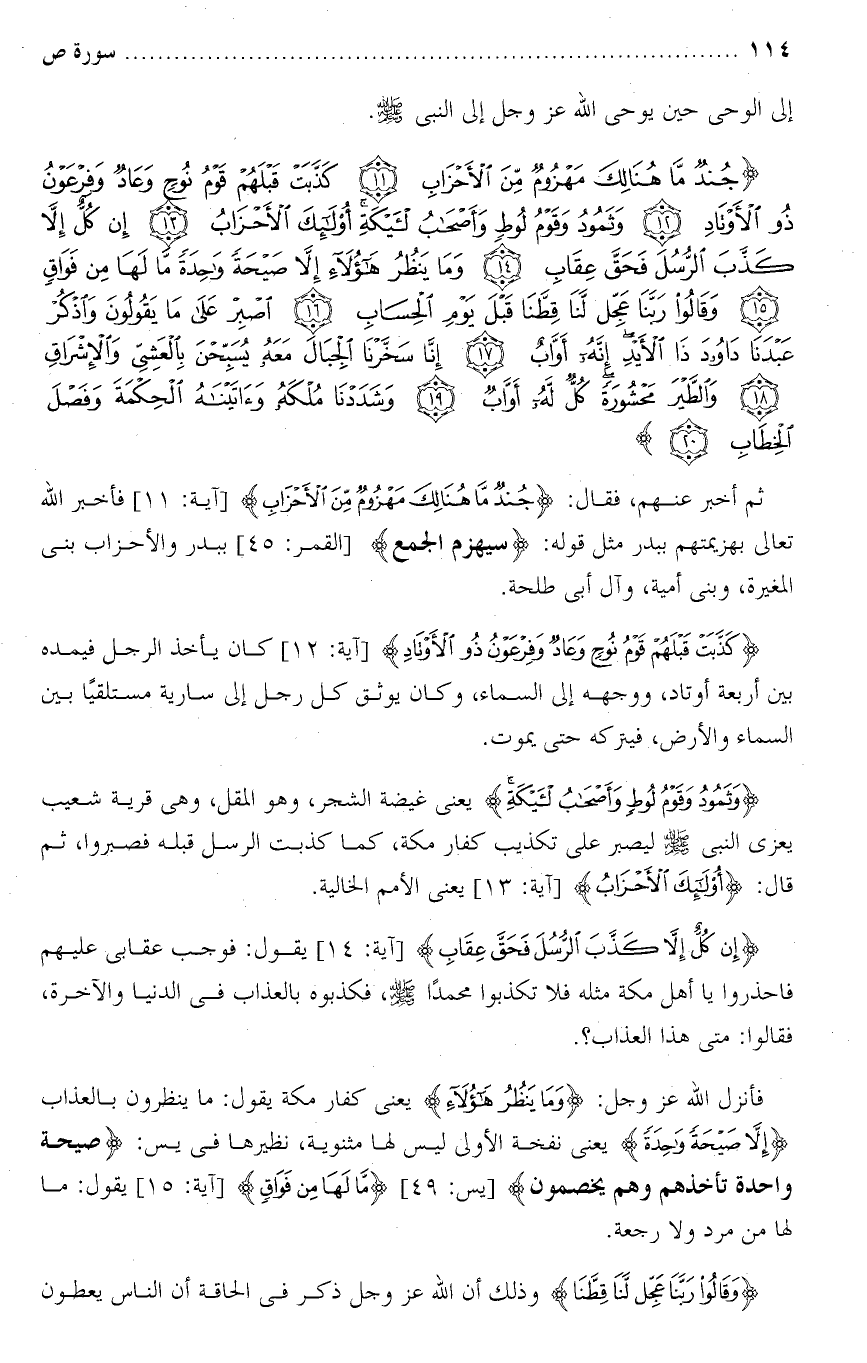 ١١٤ ........................................................................ سورة ص
إلى الوحى حين يوحى الله عز وجل إلى النبى ﷺ.
﴿جُندٌ مَّا هُنَالِكَ مَهْزُومٌ مِّنَ ٱلْأَحْزَابِ ﴿١١﴾ كَذَّبَتْ قَبْلَهُمْ قَوْمُ نُوحٍ وَعَادٌ وَفِرْعَوْنُ
ذُو ٱلْأَوْتَادِ ﴿١٢﴾ وَثَمُودُ وَقَوْمُ لُوطٍ وَأَصْحَٰبُ لْـَٔيْكَةِ ۚ أُو۟لَٰٓئِكَ ٱلْأَحْزَابُ ﴿١٣﴾ إِن كُلٌّ إِلَّا
كَذَّبَ ٱلرُّسُلَ فَحَقَّ عِقَابِ ﴿١٤﴾ وَمَا يَنظُرُ هَٰٓؤُلَآءِ إِلَّا صَيْحَةً وَٰحِدَةً مَّا لَهَا مِن فَوَاقٍ
﴿١٥﴾ وَقَالُوا۟ رَبَّنَا عَجِّل لَّنَا قِطَّنَا قَبْلَ يَوْمِ ٱلْحِسَابِ ﴿١٦﴾ ٱصْبِرْ عَلَىٰ مَا يَقُولُونَ وَٱذْكُرْ
عَبْدَنَا دَاوُۥدَ ذَا ٱلْأَيْدِ ۖ إِنَّهُۥٓ أَوَّابٌ ﴿١٧﴾ إِنَّا سَخَّرْنَا ٱلْجِبَالَ مَعَهُۥ يُسَبِّحْنَ بِٱلْعَشِىِّ وَٱلْإِشْرَاقِ
﴿١٨﴾ وَٱلطَّيْرَ مَحْشُورَةً ۖ كُلٌّ لَّهُۥٓ أَوَّابٌ ﴿١٩﴾ وَشَدَدْنَا مُلْكَهُۥ وَءَاتَيْنَٰهُ ٱلْحِكْمَةَ وَفَصْلَ
ٱلْخِطَابِ ﴿٢٠﴾ ﴾
ثم أخبر عنهم، فقال: ﴿جُندٌ مَّا هُنَالِكَ مَهْزُومٌ مِّنَ ٱلْأَحْزَابِ﴾ [آية: ١١] فأخبر الله
تعالى بهزيمتهم ببدر مثل قوله: ﴿سيهزم الجمع﴾ [القمر: ٤٥] ببدر والأحزاب بنى
المغيرة، وبنى أمية، وآل أبى طلحة.
﴿كَذَّبَتْ قَبْلَهُمْ قَوْمُ نُوحٍ وَعَادٌ وَفِرْعَوْنُ ذُو ٱلْأَوْتَادِ﴾ [آية: ١٢] كان يأخذ الرجل فيمده
بين أربعة أوتاد، ووجهه إلى السماء، وكان يوثق كل رجل إلى سارية مستلقيًا بين
السماء والأرض، فيتركه حتى يموت.
﴿وَثَمُودُ وَقَوْمُ لُوطٍ وَأَصْحَٰبُ لْـَٔيْكَةِ ۚ﴾ يعنى غيضة الشجر، وهو المقل، وهى قرية شعيب
يعزى النبى ﷺ ليصبر على تكذيب كفار مكة، كما كذبت الرسل قبله فصبروا، ثم
قال: ﴿أُو۟لَٰٓئِكَ ٱلْأَحْزَابُ﴾ [آية: ١٣] يعنى الأمم الخالية.
﴿إِن كُلٌّ إِلَّا كَذَّبَ ٱلرُّسُلَ فَحَقَّ عِقَابِ﴾ [آية: ١٤] يقول: فوجب عقابى عليهم
فاحذروا يا أهل مكة مثله فلا تكذبوا محمدًا ﷺ، فكذبوه بالعذاب فى الدنيا والآخرة،
فقالوا: متى هذا العذاب؟.
فأنزل الله عز وجل: ﴿وَمَا يَنظُرُ هَٰٓؤُلَآءِ﴾ يعنى كفار مكة يقول: ما ينظرون بالعذاب
﴿إِلَّا صَيْحَةً وَٰحِدَةً﴾ يعنى نفخة الأولى ليس لها مثنوية، نظيرها فى يس: ﴿صيحة
واحدة تأخذهم وهم يخصمون﴾ [يس: ٤٩] ﴿مَّا لَهَا مِن فَوَاقٍ﴾ [آية: ١٥] يقول: ما
لها من مرد ولا رجعة.
﴿وَقَالُوا۟ رَبَّنَا عَجِّل لَّنَا قِطَّنَا﴾ وذلك أن الله عز وجل ذكر فى الحاقة أن الناس يعطون